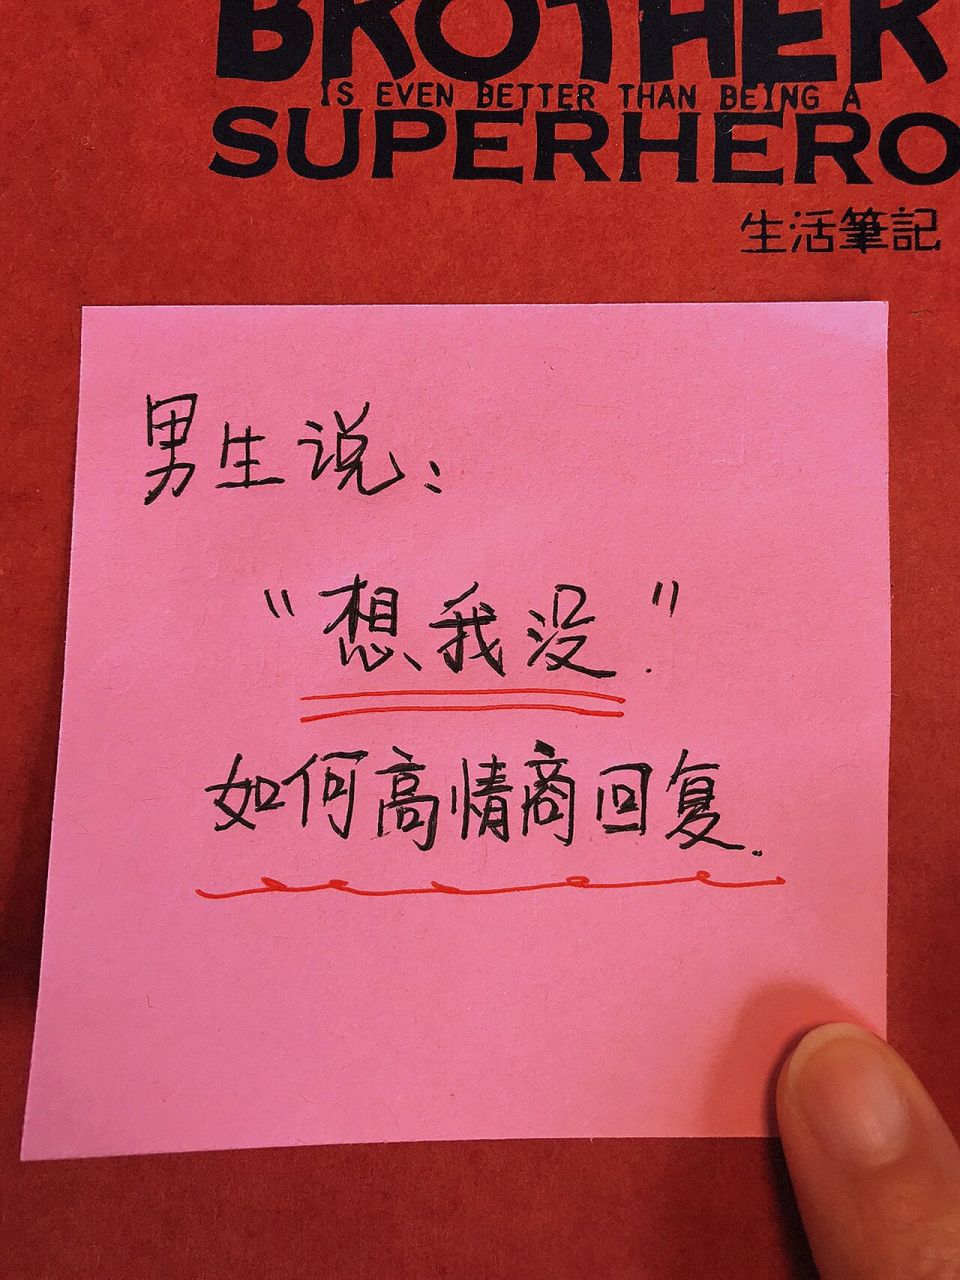 BROTHER
IS EVEN BETTER THAN BEING A
SUPERHERO
生活筆記
男生说：
“想我没.”
如何高情商回复.